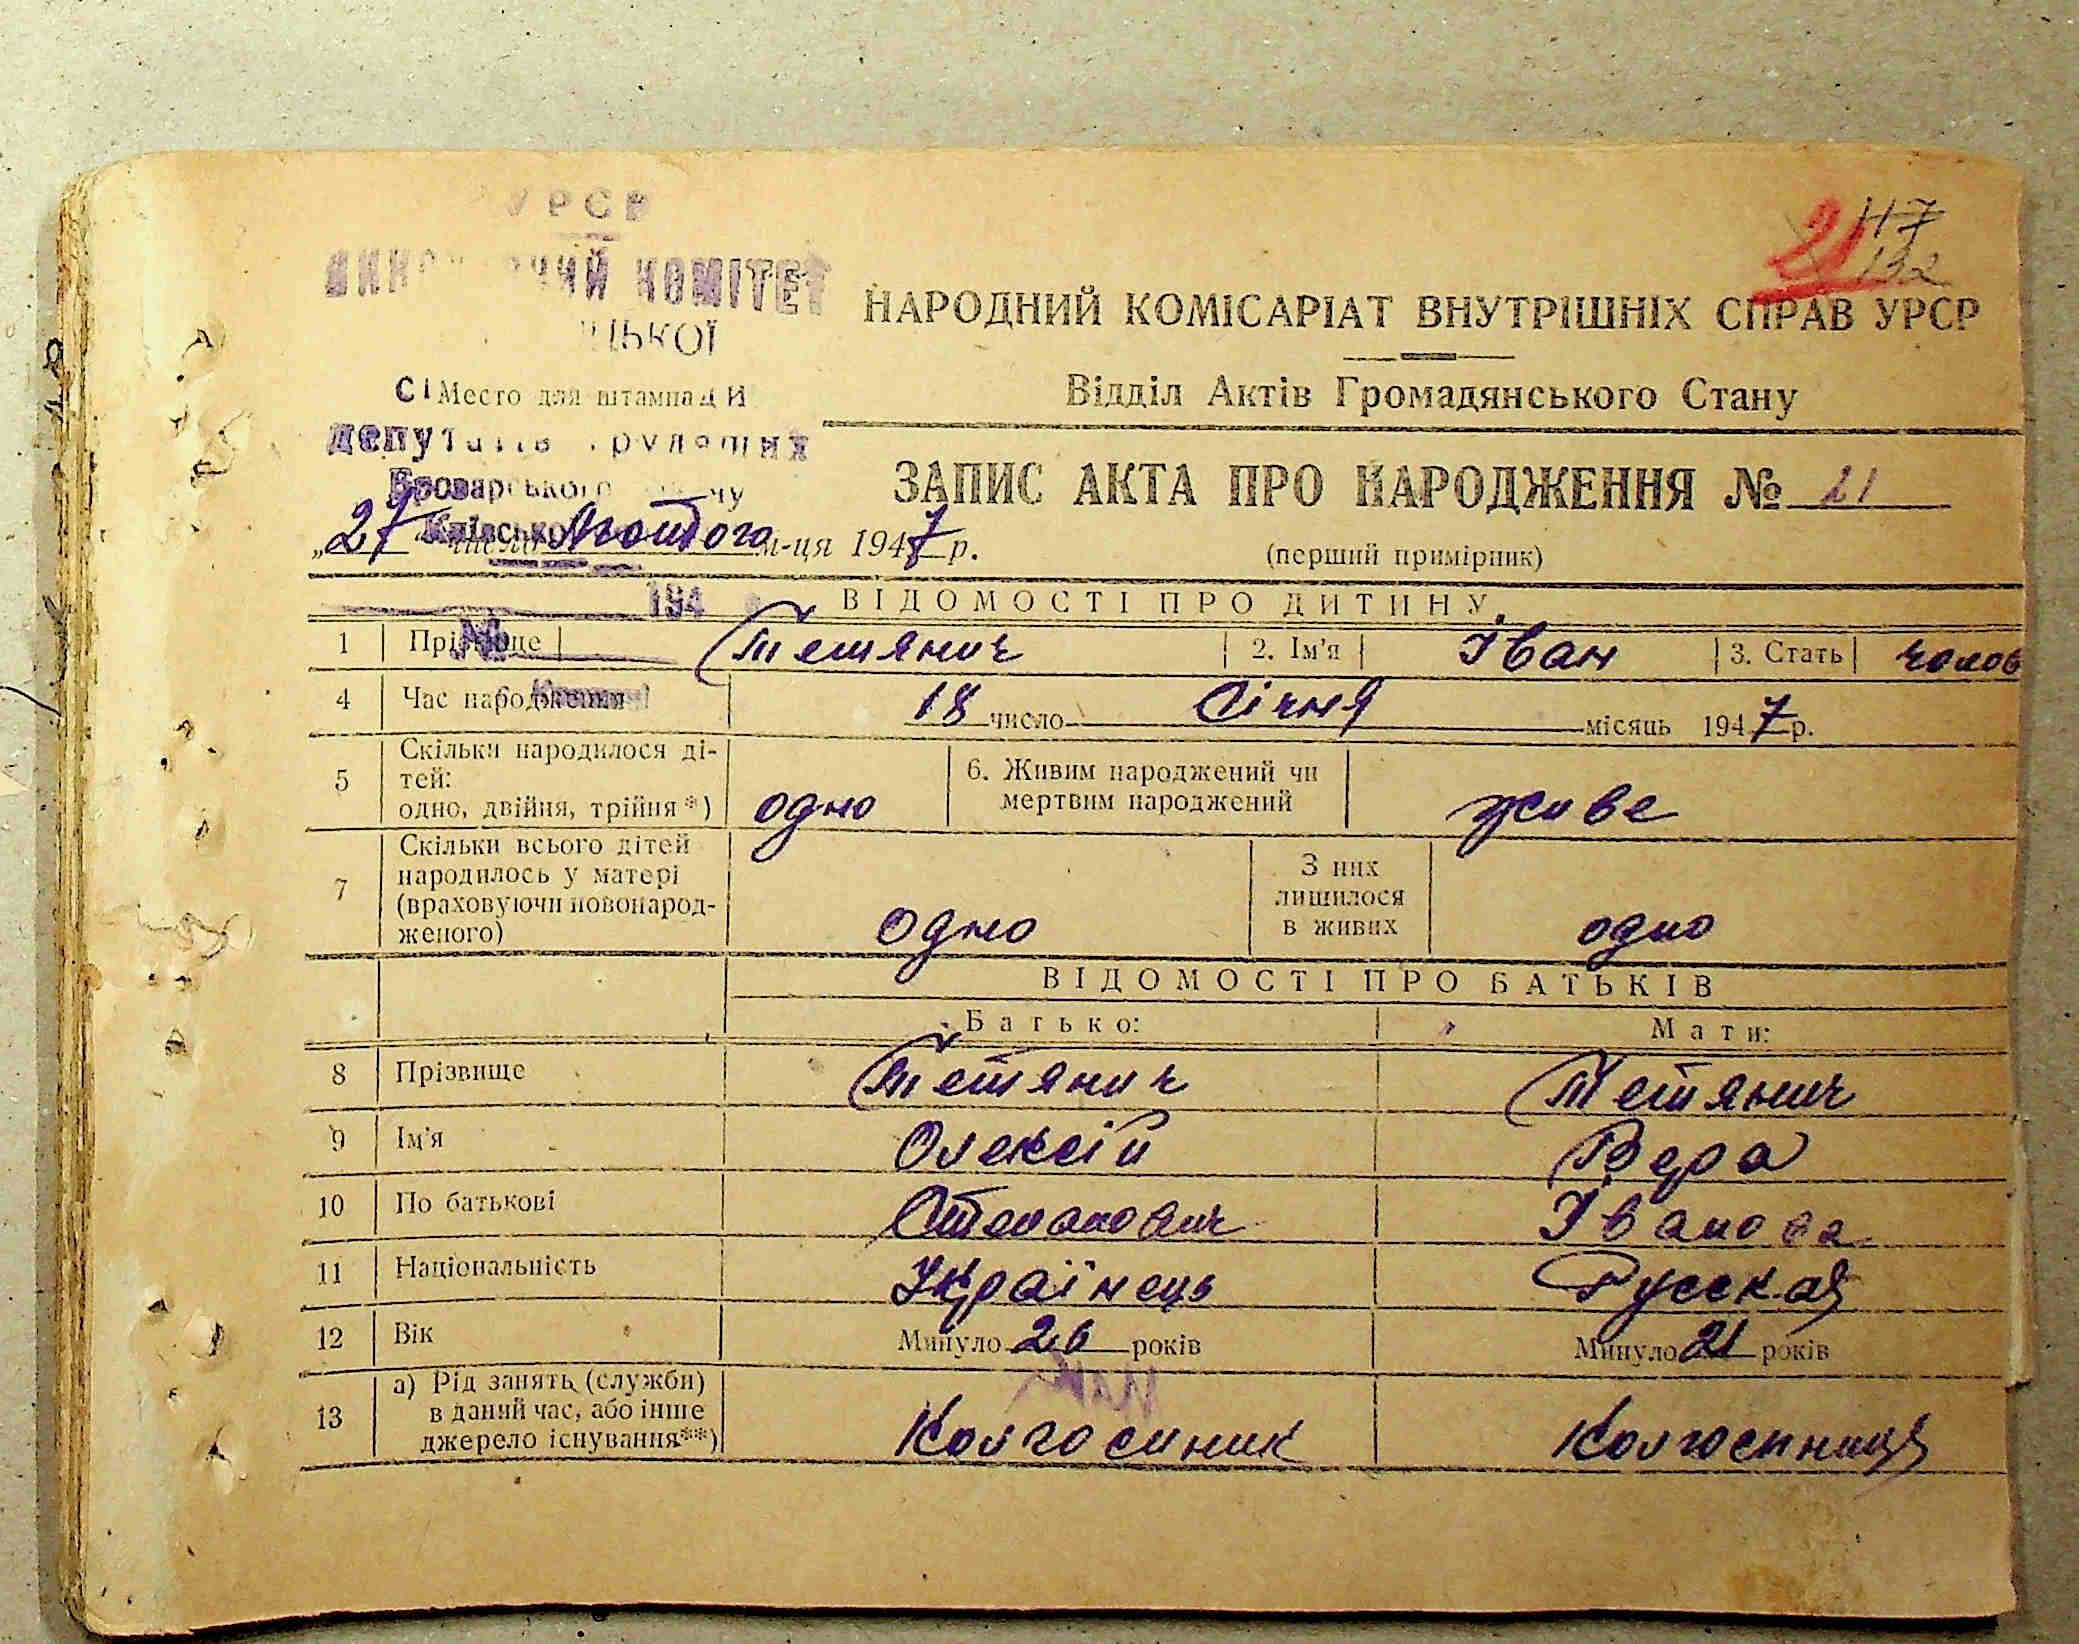 УРСР
КОМІТЕТ
117
21
132
НАРОДНИЙ КОМІСАРІАТ ВНУТРІШНІХ СПРАВ УРСР
Место для штампа
Відділ Актів Громадянського Стану
депутатів трудящих
Броварського
ЗАПИС АКТА ПРО НАРОДЖЕННЯ № 21
„27“ число Лютого м-ця 1947 р.
(перший примірник)
194
ВІДОМОСТІ ПРО ДИТИНУ
1 Прізвище Тетянич 2. Ім'я Іван 3. Стать чолов
4 Час народження 18 число Січня місяць 1947 р.
5 Скільки народилося ді-
тей:
одно, двійня, трійня*) одно 6. Живим народжений чи
мертвим народжений живе
7 Скільки всього дітей
народилось у матері
(враховуючи новонарод-
женого) одно З них
лишилося
в живих одно
ВІДОМОСТІ ПРО БАТЬКІВ
Батько: Мати:
8 Прізвище Тетянич Тетянич
9 Ім'я Олексій Вера
10 По батькові Степанович Іванова
11 Національність Українець Русская
12 Вік Минуло 26 років Минуло 21 років
13 а) Рід занять (служби)
в даний час, або інше
джерело існування**) Колгоспник Колгоспниця